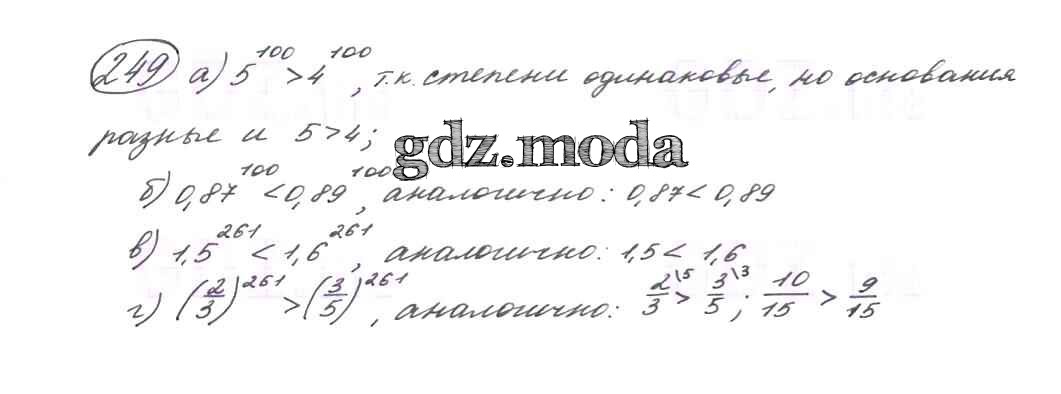 249 а) 5^100 > 4^100, т.к. степени одинаковые, но основания
разные и 5 > 4;
gdz.moda
б) 0,87^100 < 0,89^100, аналогично: 0,87 < 0,89
в) 1,5^261 < 1,6^261, аналогично: 1,5 < 1,6
г) (2/3)^261 > (3/5)^261, аналогично: 2/3 \5 > 3/5 \3; 10/15 > 9/15